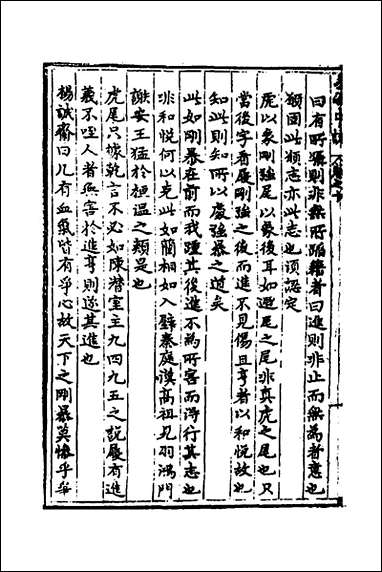 曰有所躡則非無所蹈藉者曰進則非止而無為者意也
類固此類志亦此志也須認定
虎以象剛強尾以象後耳如遯尾之尾非真虎之尾也只
當後字看履剛強之後而進不見傷且亨者以和悅故也
知此則知所以處強暴之道矣
此如剛暴在前而我踵其後進不為所害而得行其志也
非和悅何以克此如藺相如入璧秦庭漢高祖見羽鴻門
謝安王猛於桓溫之類是也
虎尾只據乾言不必如陳潛室主九四九五之說履有進
義不咥人者無害於進亨則遂其進也
楊誠齋曰凡有血氣皆有爭心故天下之剛暴莫慘乎爭